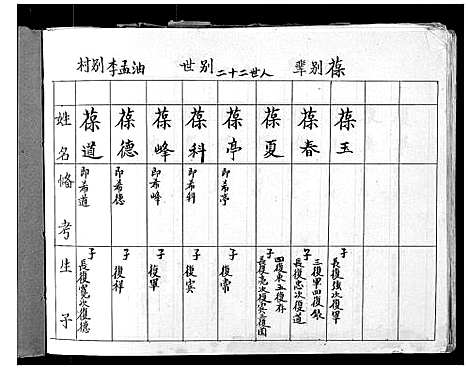 輩別 葆
世別 二十二世人
村別 李孟油
姓名
略考
生子
葆玉
子 長復強次復單
三復單四復錄
葆春
子 長復忠次復道
葆夏
子 長復亮次復賓三復國
四復東五復存
葆亭
即希亭
子 復常
葆科
即希科
子 復賓
葆峰
即希峰
子 復單
葆德
即希德
子 復祥
葆道
即希道
子 長復寬次復德